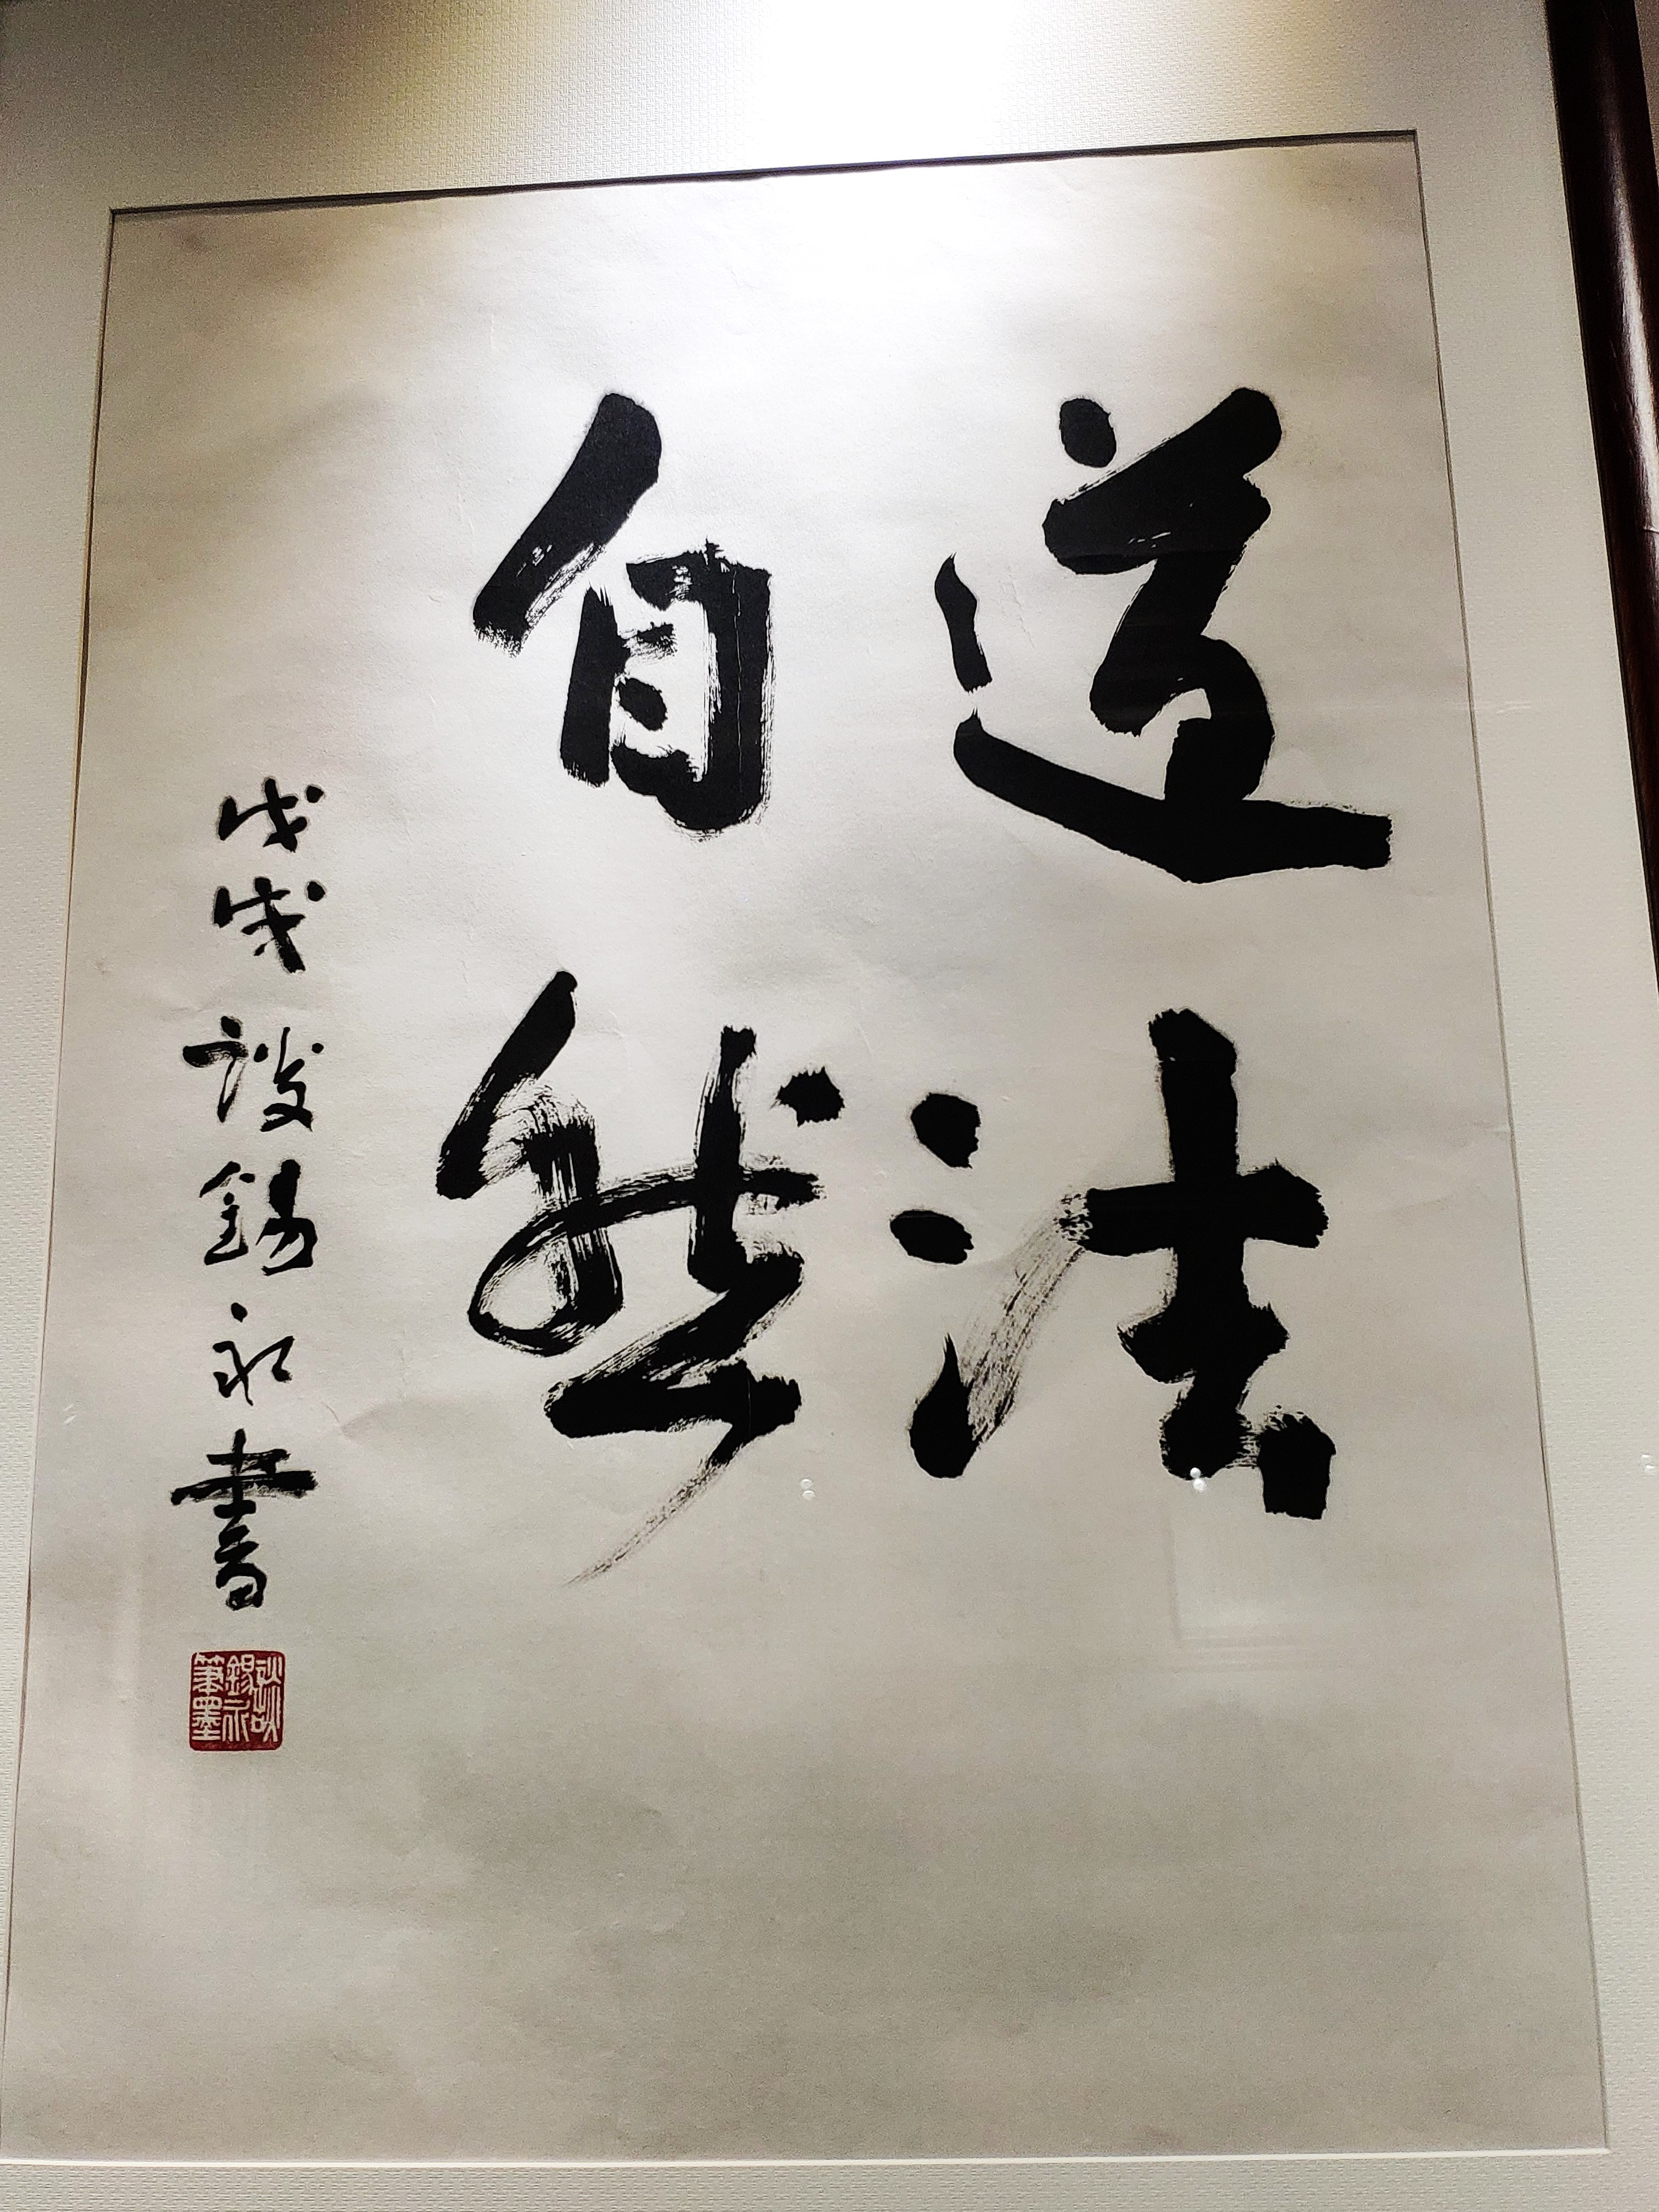 道法
自然
戊戌 談錫永書
談錫永筆墨